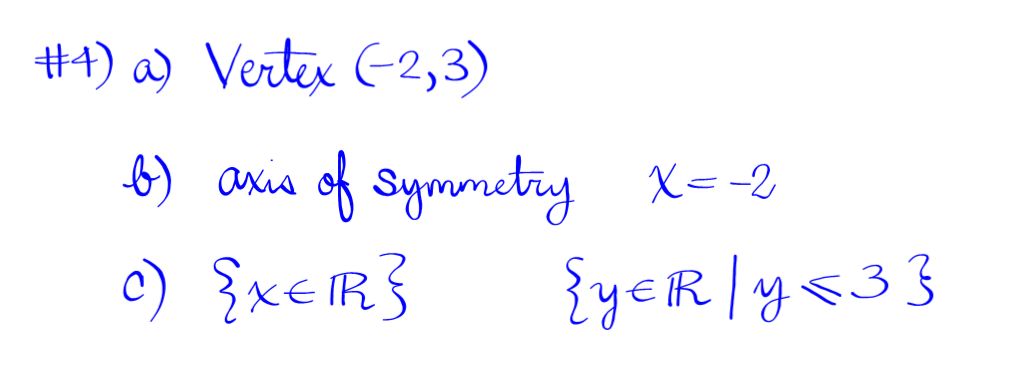 #4) a) Vertex (-2,3)
b) axis of symmetry x = -2
c) {x ∈ ℝ} {y ∈ ℝ | y ⩽ 3}